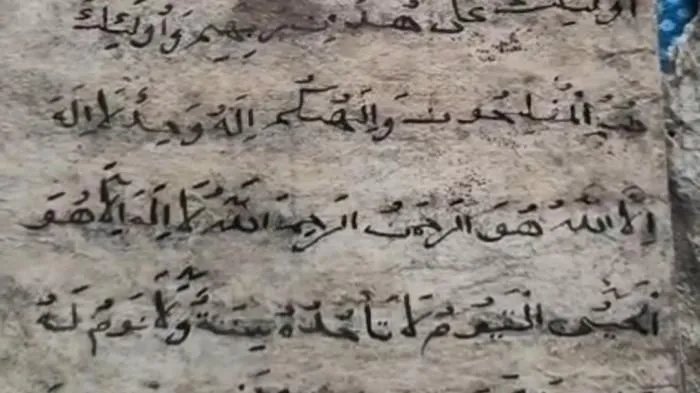 أُولَئِكَ عَلَى هُدًى مِنْ رَبِهِمِ وَأُولَئِكَ
هُمُ الْمُفْلِحُونَ وَإِلَهُكُمْ إِلَهٌ وَحِدٌ لَا إِلَهَ
إِلَّا اللَّهُ هُوَ الرَحْمَنُ الرَحِيمُ اللَّهُ لَا إِلَهَ إِلَّا هُوَ
اَلْحَيُّ الْقَيُّومُ لَا تَأْخُذُهُ سِنَةٌ وَلَا نَوْمٌ لَهُ